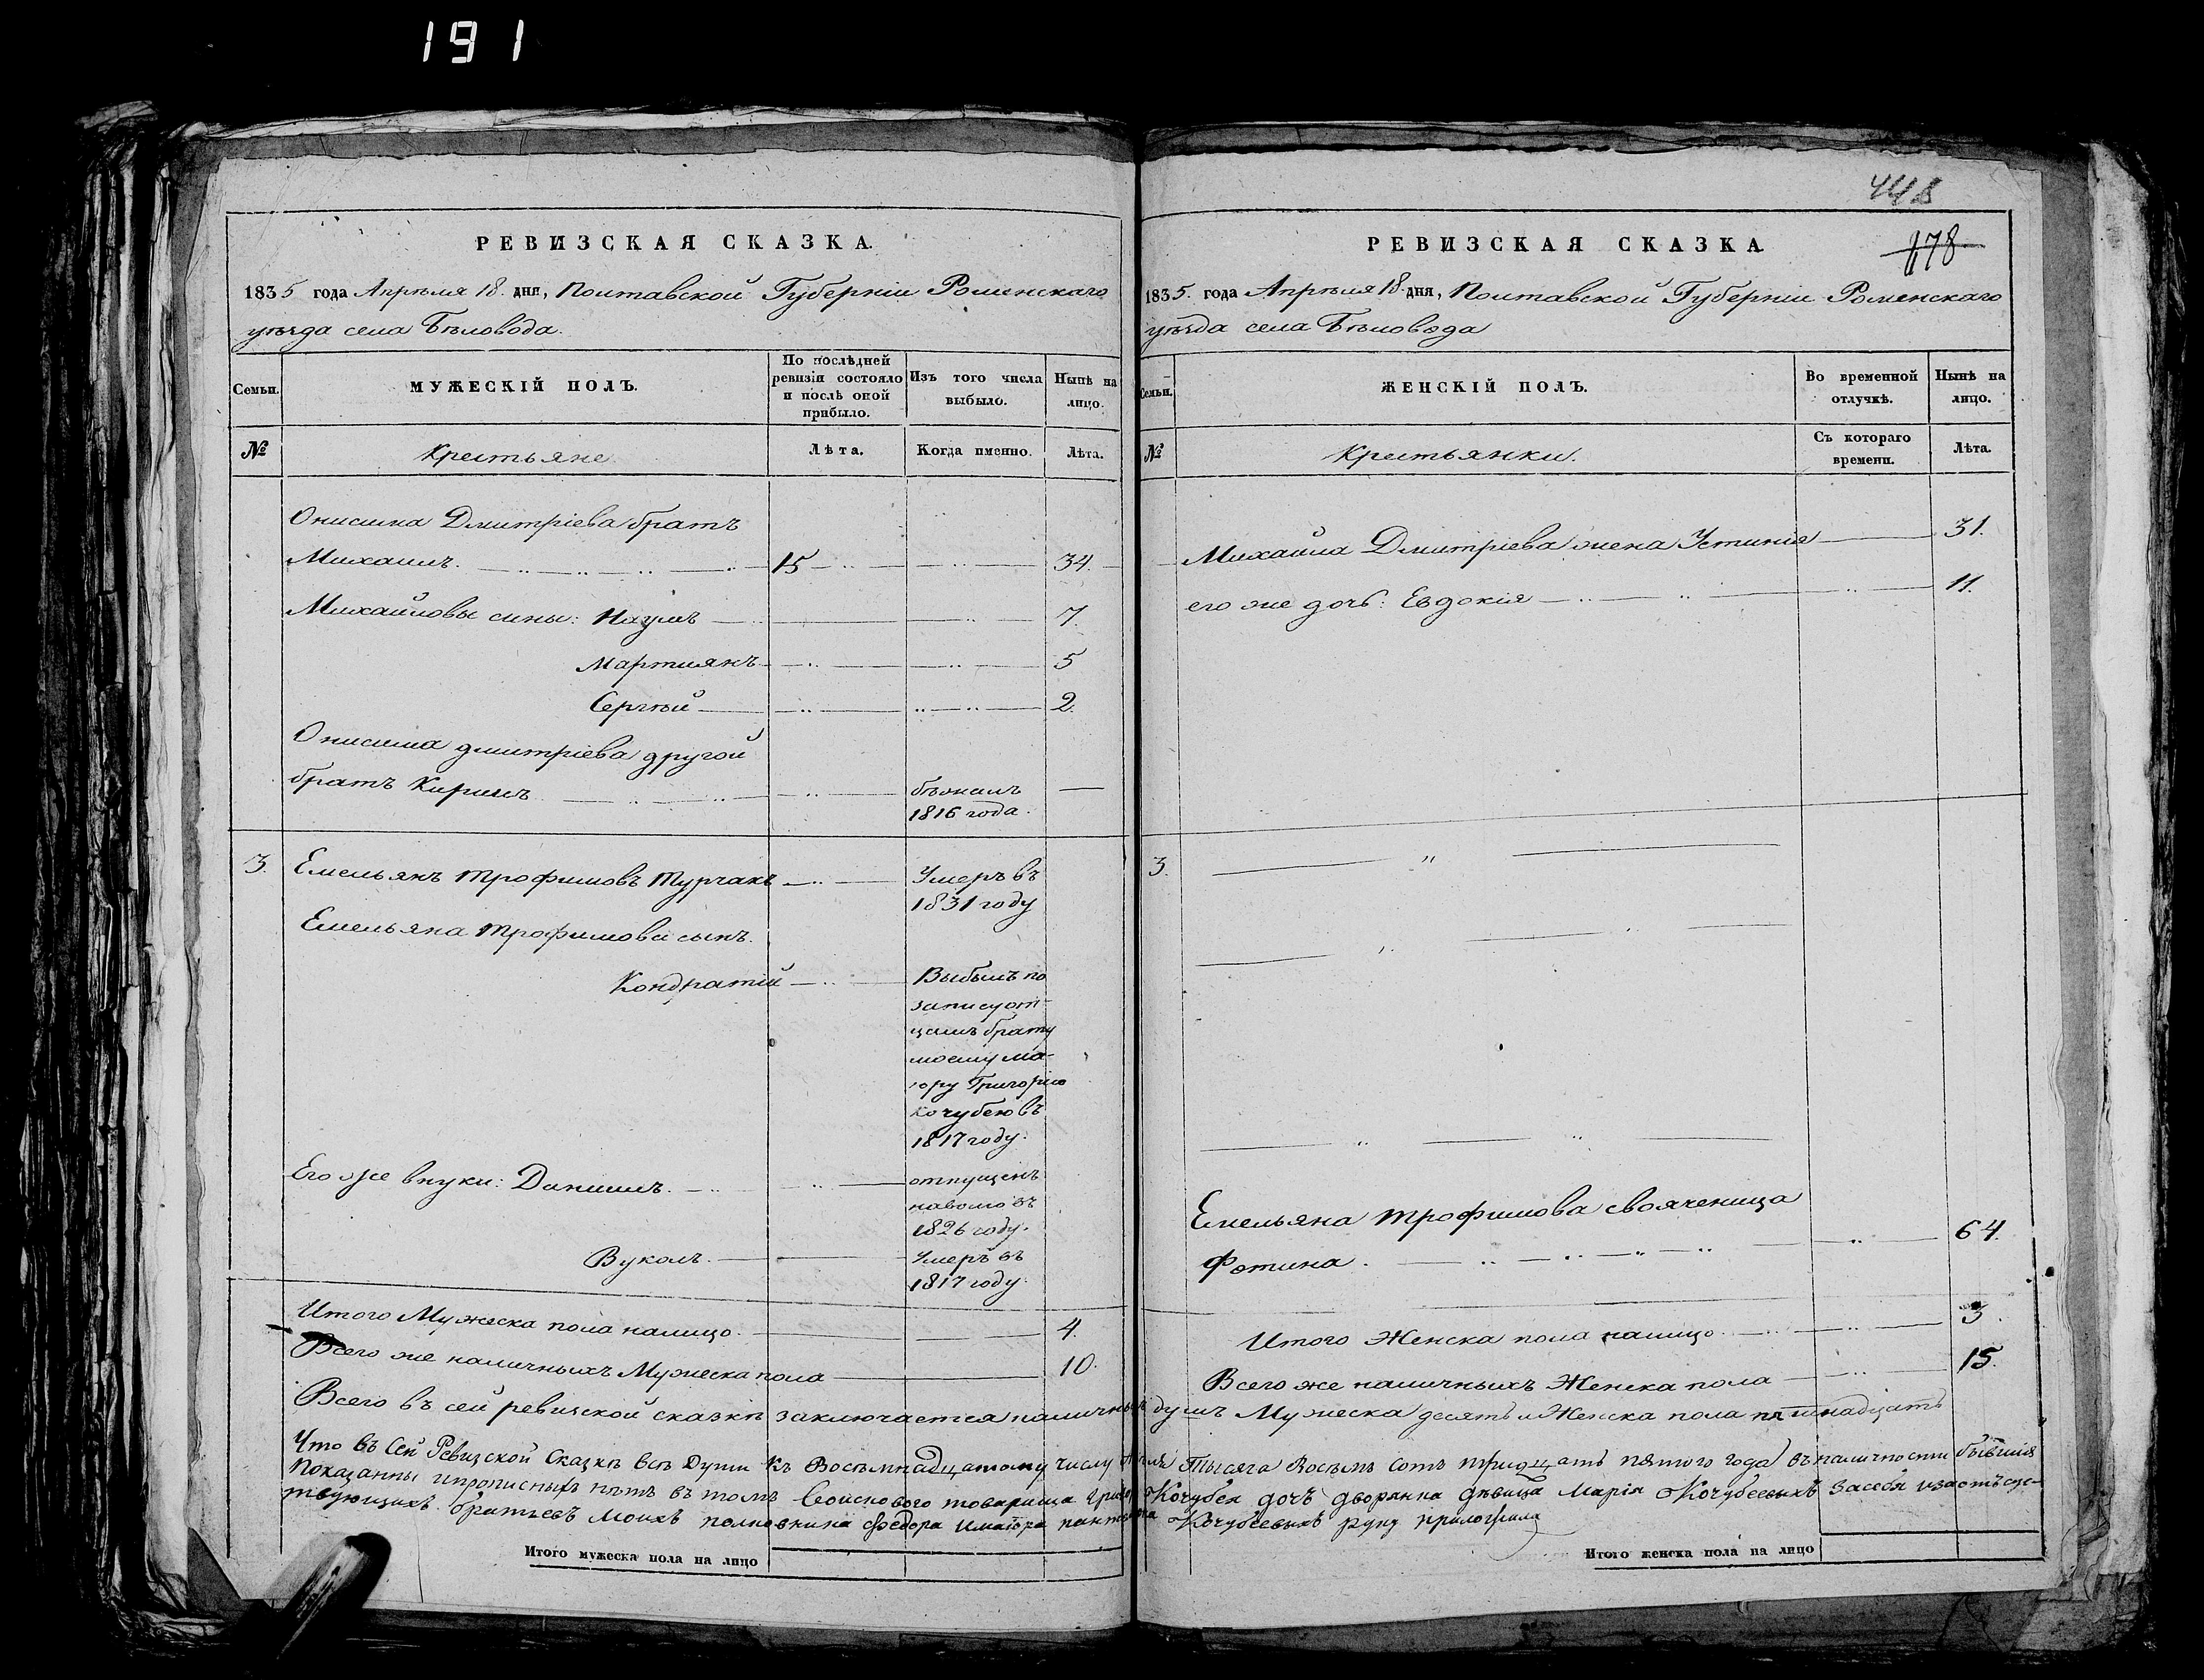 191
РЕВИЗСКАЯ СКАЗКА.
1835 года Апреля 18. дня, Полтавской Губерніи Роменскаго
уѣзда села Бѣловода.
Семьи.
МУЖЕСКІЙ ПОЛЪ.
По послѣдней
ревизіи состояло
и послѣ оной
прибыло.
Изъ того числа
выбыло.
Нынѣ на
лицо.
№
Крестьяне
Лѣта.
Когда именно.
Лѣта.
Онисима Дмитріева братъ
Михаилъ. 15 34.
Михайловы сины: Наумъ 7.
Мартиянъ 5
Сергѣй 2.
Онисима дмитріева другой
братъ Кирилъ бѣжалъ
1816 года.
3. Емельянъ Трофимовъ Турчакъ Умеръ въ
1831 году
Емельяна Трофимова сынъ.
Кондратій Выбылъ по
запису от-
цамъ брату
моему ма-
іору Григорію
Кочубею въ
1817 году.
Его же внуки: Данишлъ. отпущенъ
наволю въ
1826 году.
Вуколъ. Умеръ въ
1817 году.
Итого Мужеска пола налицо. 4.
Всего же наличныхъ Мужеска пола 10.
448
178
РЕВИЗСКАЯ СКАЗКА
1835. года Апреля 18. дня, Полтавской Губерніи Роменскаго
уѣзда села Бѣловода
Семьи.
ЖЕНСКІЙ ПОЛЪ.
Во временной
отлучкѣ.
Нынѣ на
лицо.
№
Крестьянки.
Съ котораго
времени.
Лѣта.
Михайла Дмитріева жена Устинія 31.
его же дочь: Евдокія 11.
3.
Емельяна Трофимова свояченица
Фотина. 64.
Итого Женска пола налицо 3.
Всего же наличныхъ Женска пола 15.
Всего въ сей ревизской сказкѣ заключается наличныхъ душъ Мужеска десять и Женска пола пятнадцать
Что въ Сей Ревизской Сказкѣ всѣ Души Къ Восемнадцатому числу Тысяча Восемь сотъ тридцать пятого года въ наличности бывшія
показанны и прописныхъ нѣтъ въ томъ войскового товарища Кочубея дочь дворянка дѣвица Марія Кочубеевыхъ За себя и за отъсут-
твующихъ братьевъ Моихъ полковника Федора и маіора Кочубеевыхъ руку приложила
Итого мужеска пола на лицо
Итого женска пола на лицо